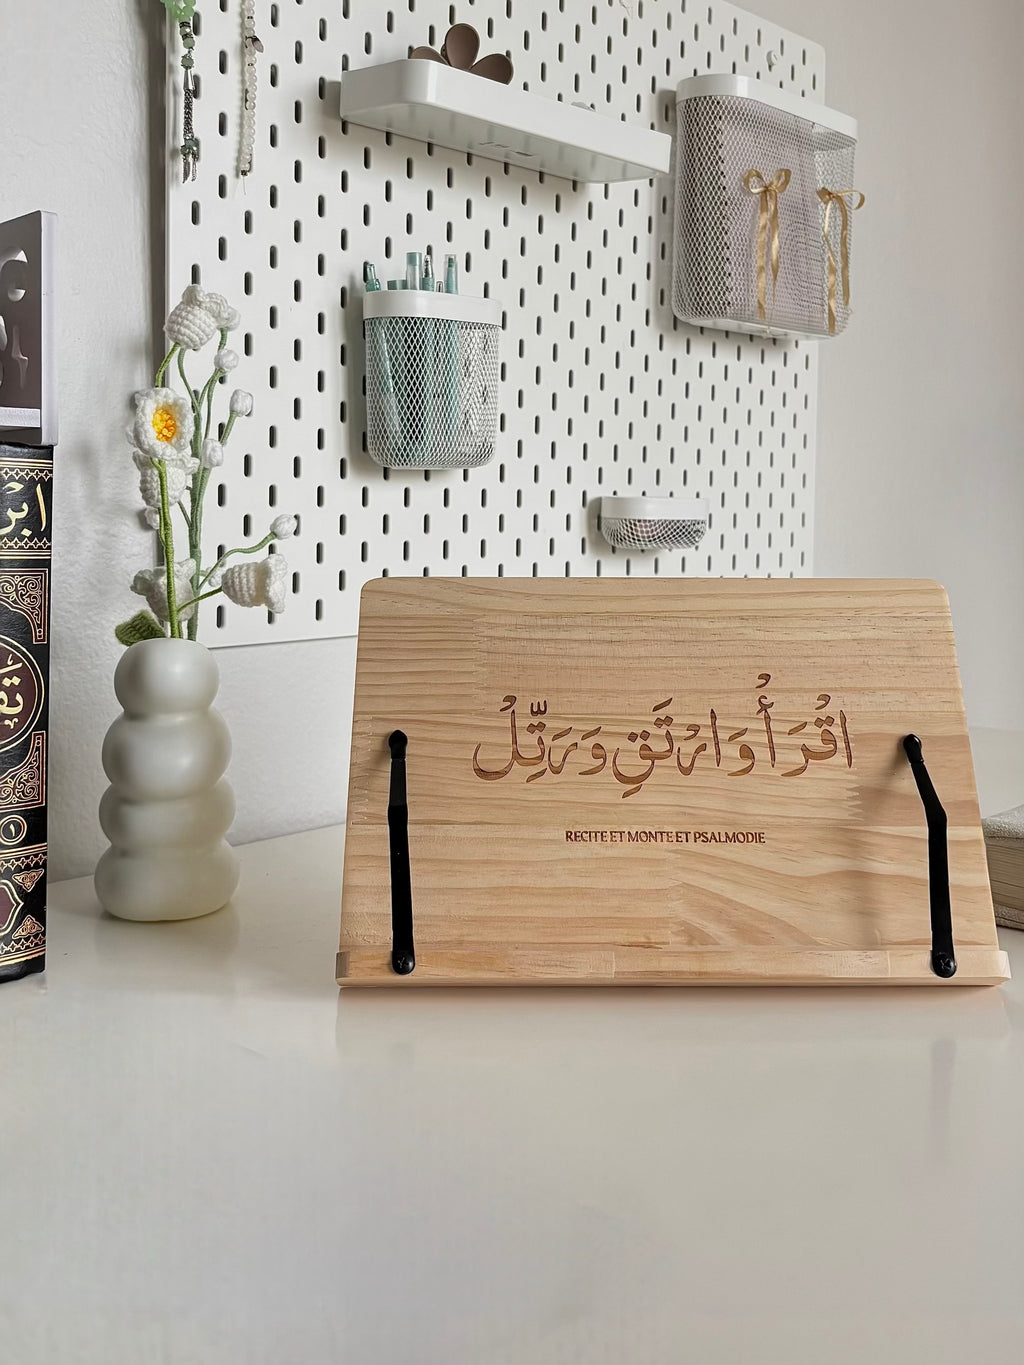 اقْرَأْ وَارْتَقِ وَرَتِّلْ
RECITE ET MONTE ET PSALMODIE